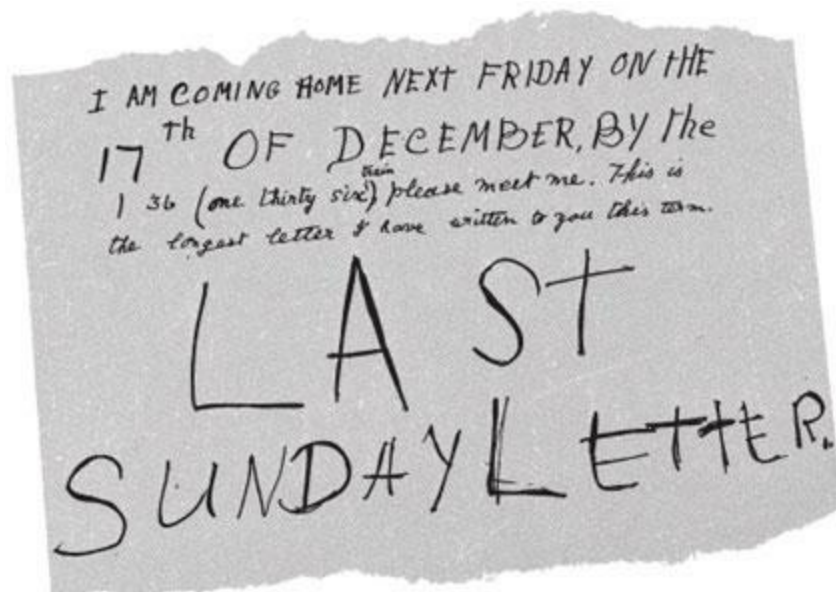 I AM COMING HOME NEXT FRIDAY ON tHE
17th OF DECEMBER, BY the
train
1 36 (one thirty six) please meet me. This is
the longest letter I have written to you this term.
LAST
SUNDAY LETTER.